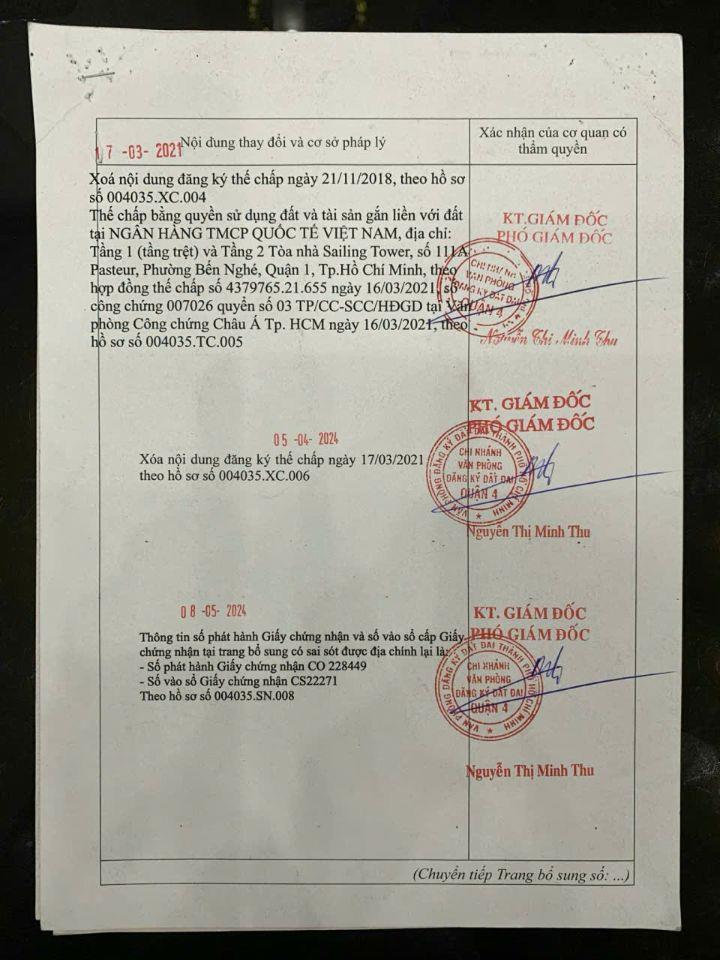 Nội dung thay đổi và cơ sở pháp lý
Xác nhận của cơ quan có
thẩm quyền
17 -03- 2021
Xoá nội dung đăng ký thế chấp ngày 21/11/2018, theo hồ sơ
số 004035.XC.004
Thế chấp bằng quyền sử dụng đất và tài sản gắn liền với đất
tại NGÂN HÀNG TMCP QUỐC TẾ VIỆT NAM, địa chỉ:
Tầng 1 (tầng trệt) và Tầng 2 Tòa nhà Sailing Tower, số 111A
Pasteur, Phường Bến Nghé, Quận 1, Tp.Hồ Chí Minh, theo
hợp đồng thế chấp số 4379765.21.655 ngày 16/03/2021, số
công chứng 007026 quyển số 03 TP/CC-SCC/HĐGD tại Văn
phòng Công chứng Châu Á Tp. HCM ngày 16/03/2021, theo
hồ sơ số 004035.TC.005
KT.GIÁM ĐỐC
PHÓ GIÁM ĐỐC
CHI NHÁNH
VĂN PHÒNG
ĐĂNG KÝ ĐẤT ĐAI
QUẬN 4
Nguyễn Thị Minh Thu
05 -04- 2024
Xóa nội dung đăng ký thế chấp ngày 17/03/2021
theo hồ sơ số 004035.XC.006
KT. GIÁM ĐỐC
PHÓ GIÁM ĐỐC
VĂN PHÒNG ĐĂNG KÝ ĐẤT ĐAI THÀNH PHỐ HỒ CHÍ MINH
CHI NHÁNH
VĂN PHÒNG
ĐĂNG KÝ ĐẤT ĐAI
QUẬN 4
Nguyễn Thị Minh Thu
08 -05- 2024
Thông tin số phát hành Giấy chứng nhận và số vào sổ cấp Giấy
chứng nhận tại trang bổ sung có sai sót được địa chính lại là:
- Số phát hành Giấy chứng nhận CO 228449
- Số vào sổ Giấy chứng nhận CS22271
Theo hồ sơ số 004035.SN.008
KT. GIÁM ĐỐC
PHÓ GIÁM ĐỐC
VĂN PHÒNG ĐĂNG KÝ ĐẤT ĐAI THÀNH PHỐ HỒ CHÍ MINH
CHI NHÁNH
VĂN PHÒNG
ĐĂNG KÝ ĐẤT ĐAI
QUẬN 4
Nguyễn Thị Minh Thu
(Chuyển tiếp Trang bổ sung số: ...)